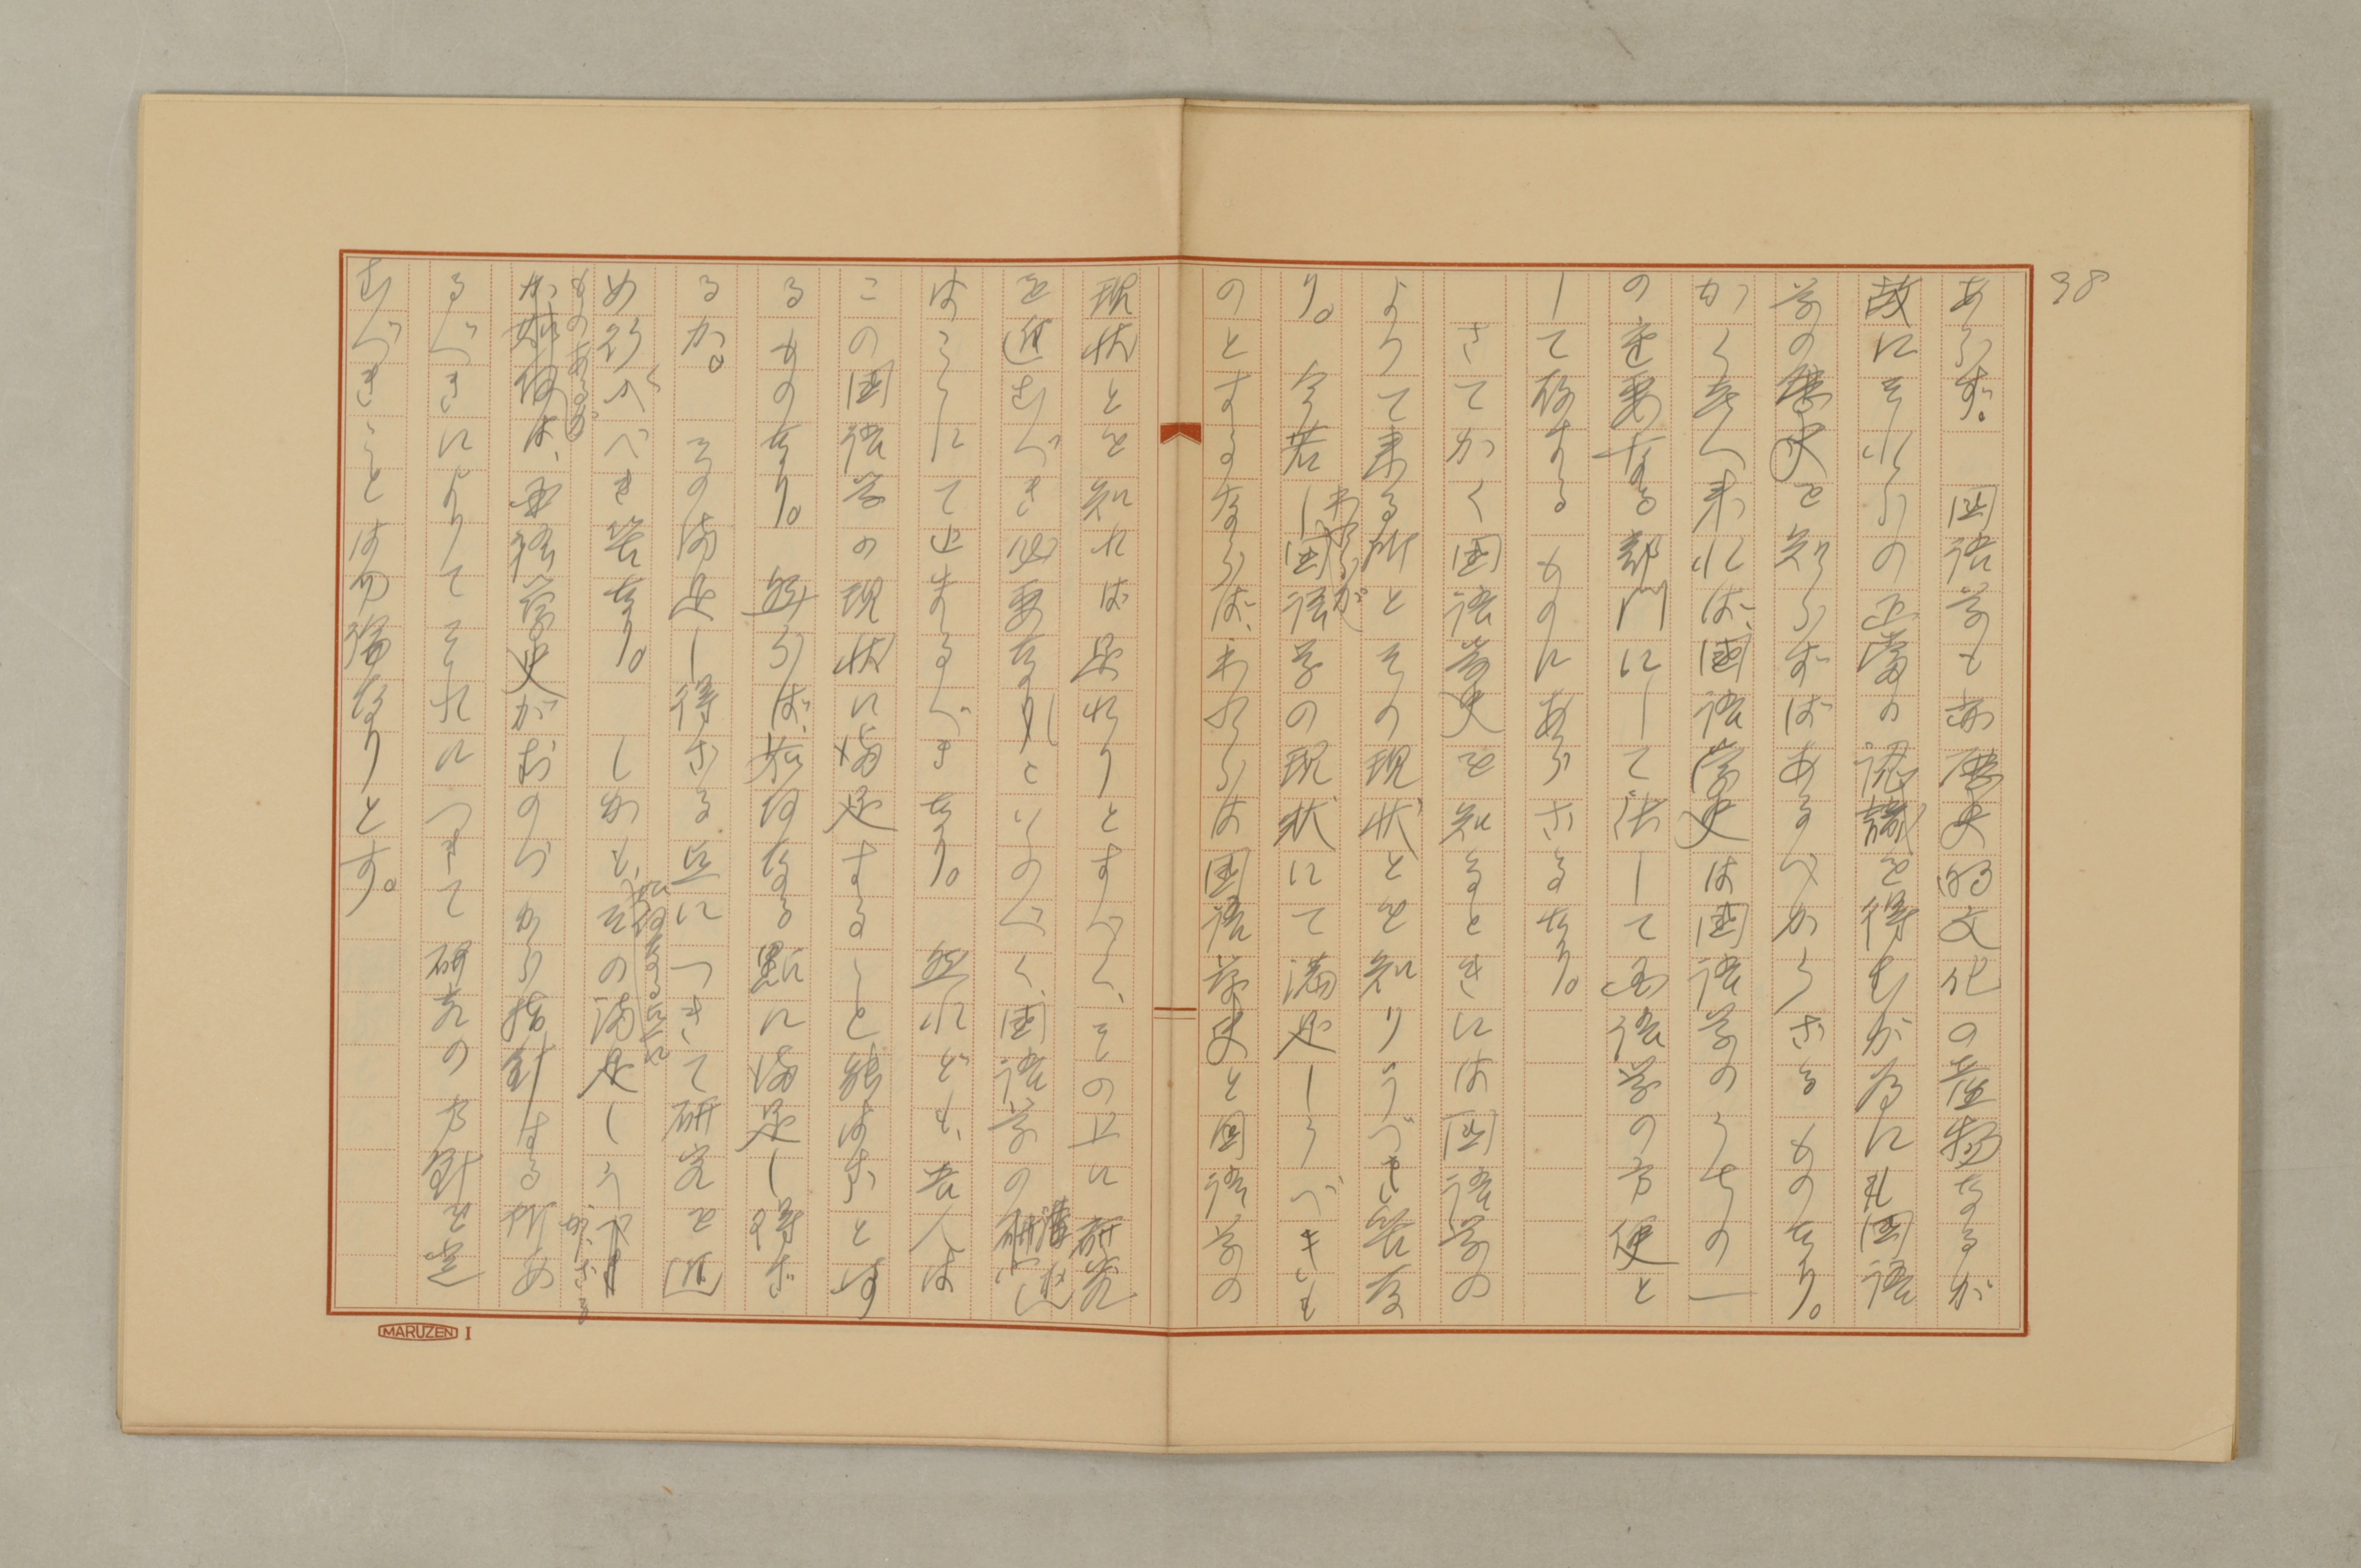 38
あらず。国語学も亦歴史的文化の産物なるが
故にそれらの正當の認識を得むが為に国語
学の歴史を知らずはあるべからざるものなり。
かく考へ来れば、国語学史は国語学のうちの一
の重要なる部門にして決して国語学の方便と
して存するものにあらざるなり。
さてかく国語学史を知るときには国語学の
よりて来る所とその現状とを知りうべき筈な
り。今若し国語学の現状にて満足しうべきも
われらが
のとするならば、われらは国語学史と国語学の
現状とを知れば足れりとすべく、その上に研究
を進むべき必要なしといふべく、国語学の進
講
はここにて止まるべきなり。然れども、吾人は
この国語学の現状に満足すること能はずとす
るものなり。然らば、如何なる點に満足し得ざ
るか。その満足し得ざる点につきて研究を進
め行くべき筈なり。しかも、その満足しう
如何なる点に
がたざる
ものあるか
か如何は、国語学史がおのづから指針する所あ
るべきによりてそれにつきて研究の方針を定
むべきことは勿論なりとす。
MARUZEN I